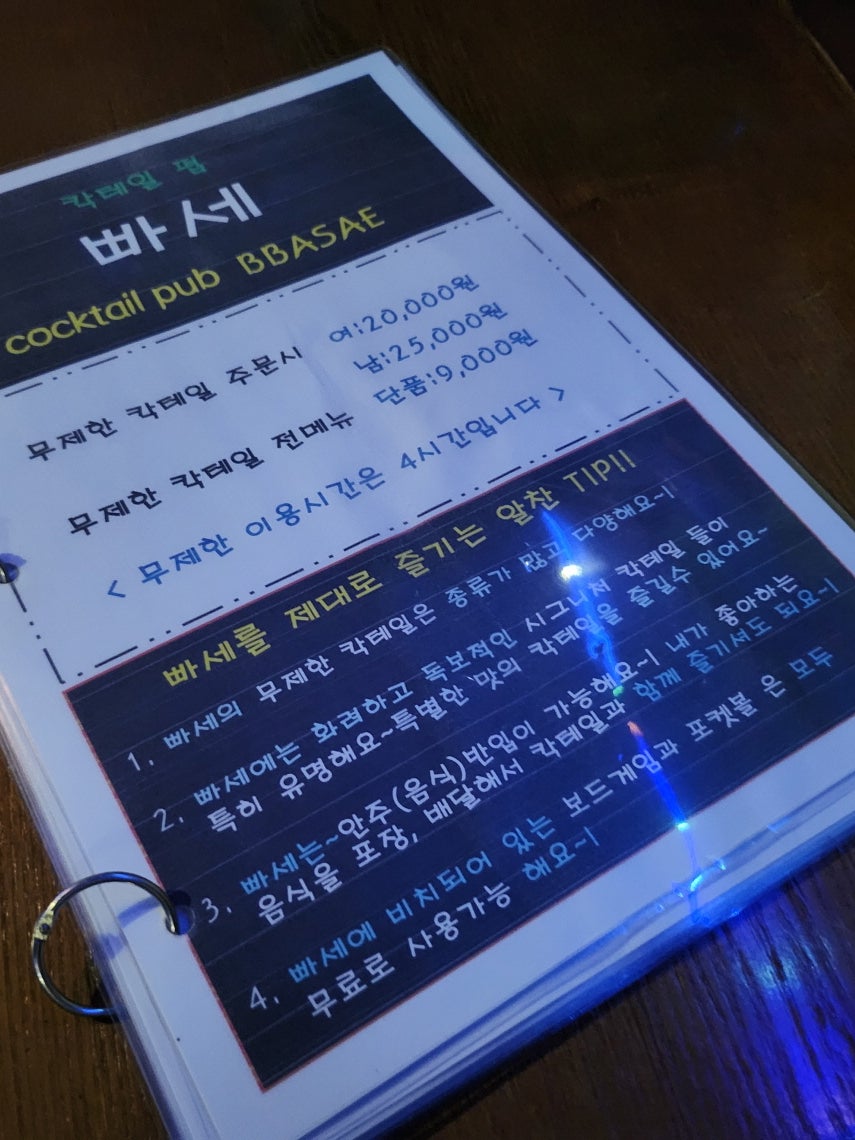 칵테일 펍
빠세
cocktail pub BBASAE
무제한 칵테일 주문시 여:20,000원
남:25,000원
무제한 칵테일 전메뉴 단품:9,000원
< 무제한 이용시간은 4시간입니다 >
빠세를 제대로 즐기는 알찬 TIP!!
1. 빠세의 무제한 칵테일은 종류가 많고 다양해요~!
2. 빠세에는 화려하고 독보적인 시그니처 칵테일 들이
특히 유명해요~특별한 맛의 칵테일을 즐길수 있어요~
3. 빠세는~안주(음식)반입이 가능해요~! 내가 좋아하는
음식을 포장, 배달해서 칵테일과 함께 즐기셔도 되요~!
4. 빠세에 비치되어 있는 보드게임과 포켓볼 은 모두
무료로 사용가능 해요~!